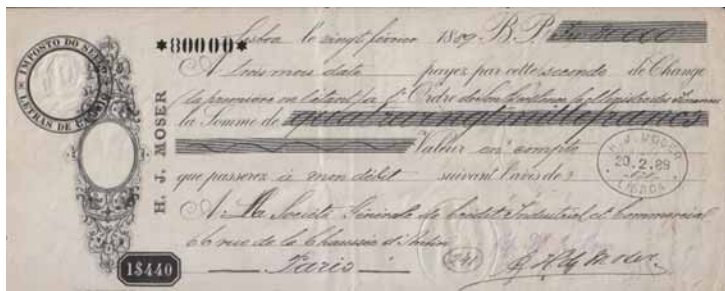 IMPOSTO DO SELLO
LETRAS DE CAMBIO
1$440
H. J. MOSER
*80000*
Lisboa le vingt février 1889 B. P. Frs 80000
A trois mois date payez par cette seconde de Change
la première ne l'étant pas à l'Ordre de Son Excellence le Ministre des Finances
la Somme de quatrevingt mille francs
Valeur en compte
que passerez à mon débit suivant l'avis de
H. J. MOSER
20.2.89
LISBOA
A la Société Générale de Crédit Industriel et Commercial
66 rue de la Chaussée d'Antin
Paris